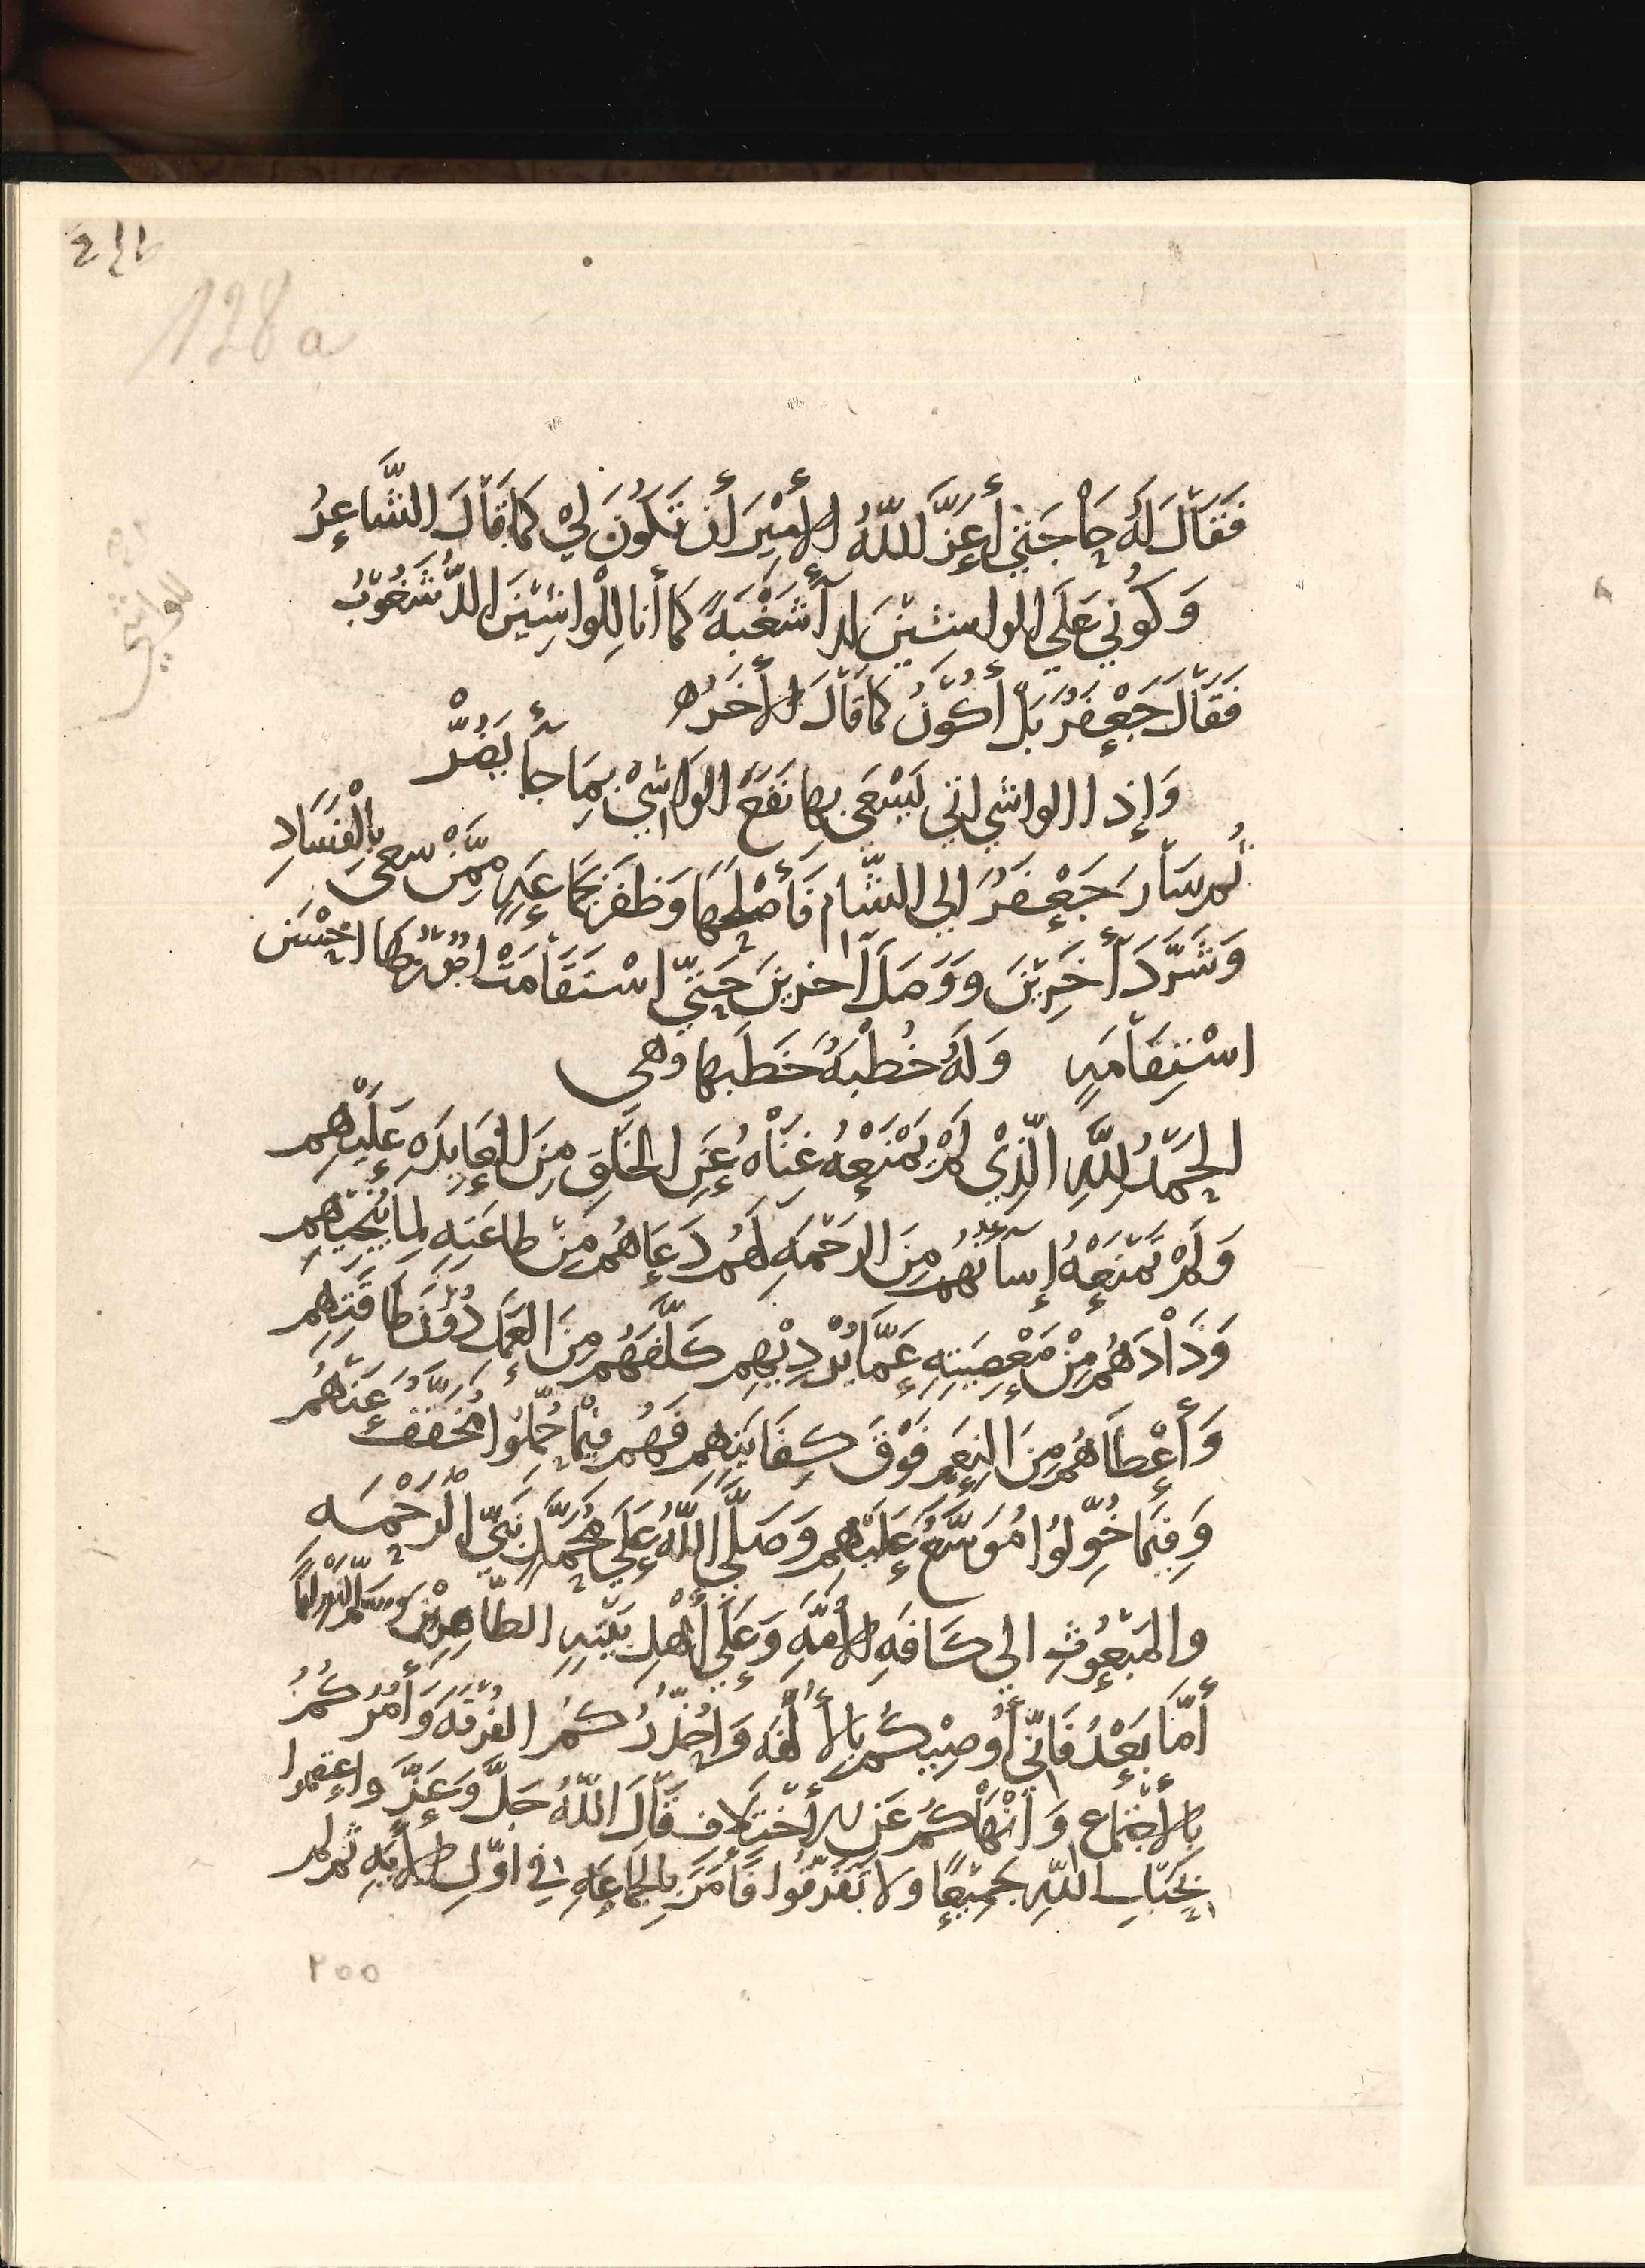 128 a
فَقَالَ لَهُ حَاجَتِي أَعَزَّ اللّهُ الأَمِيْرَ أَن تَكُونَ لِيْ كَمَا قَالَ الشَّاعِرُ
وَكُونِي عَلَى الواشِيْنَ لدآ شَغْبَةً كَمَا أنا لِلْواشِيْنَ الدُّ شَغُوْبُ
فَقَالَ جَعْفَرُ بَلْ أَكُوْنُ كَمَا قَالَ الأَخَرُ ه
وَإِذا الواشي اتي يَسْعَي بها نَفَعَ الوَاشِيْ بِمَا جآأ يَضُرّْ
ثُم سَارَ جَعْفَرُ الي الشَّام فَأَصْلَحَهَا وَظَفَرَ بجَمَاعَةٍ مِمَّنْ سعىَ بِالْفَسَادِ
وَشَرَّدَ أَخَرِيْنَ وَوَصَلَ آخرينَ حَتيّ اسْتَقَامَتْ امُوْرُهَا احْسَن
اسْتِقَامَةٍ وَلَهُ خُطْبَةُ خَطَبَها وهى
الحَمْدُ لِلَّهِ الّذِيْ لَمْ يَمْنَعْهُ غِنَاهُ عَنِ الخَلَقِ مِنَ العَايِدَه عَلَيْهِم
وَلَمْ تَمْنَعْهُ إِسآتُهُم مِنَ الرَحْمَهِ لَهُم دَعَاهُم مِنْ طاعَتِهِ لِمَا يُنْجِيْهِم
وَذَادَهُم مِنْ مَعْصِيَتِهِ عَمَّا يُرْدِيْهِم كَلَّفَهُم مِنَ العَمَل دُوْنَ طَاقَتِهِم
وَأَعْطَاهُم مِنَ النِعَمِ فَوْقَ كِفَايَتِهِم فَهُم فِيْمَا حُمّلُوا مُخَفَّفُ عَنْهُم
وَفِيْمَا خُوّلُوا مُوَسَّعُ عَلَيْهِم وَصَلَّي اللّهُ عَلَي مُحَمَّدٍ نَبيّ الرَّحْمَه
والمَبْعُوْثِ الي كَافَهِ الأُمَّهِ وَعَلَي أَهْلِ بَيْتِهِ الطّاهِرِيْنَ وسلّم
أَمَّا بَعْدُ فَانّي أُوصِيْكُم بِالأُلْفَه وَاُحَذّرُكُمُ الفُرْقَهَ وَأَمُرُكُمُ
بالأجْتِمَاعِ وَأَنْهَاكُم عَنِ الأخْتِلَافِ قَالَ اللّهُ جَلَّ وَعَزَّ واعتصموا
بِحَبْلِ اللّهِ جَمِيْعًا ولا تَفَرَّقُوا فَأَمَرَ بِالجَمَاعَهِ في اوّلِ الأَيَهِ ثم لم
٢٥٥